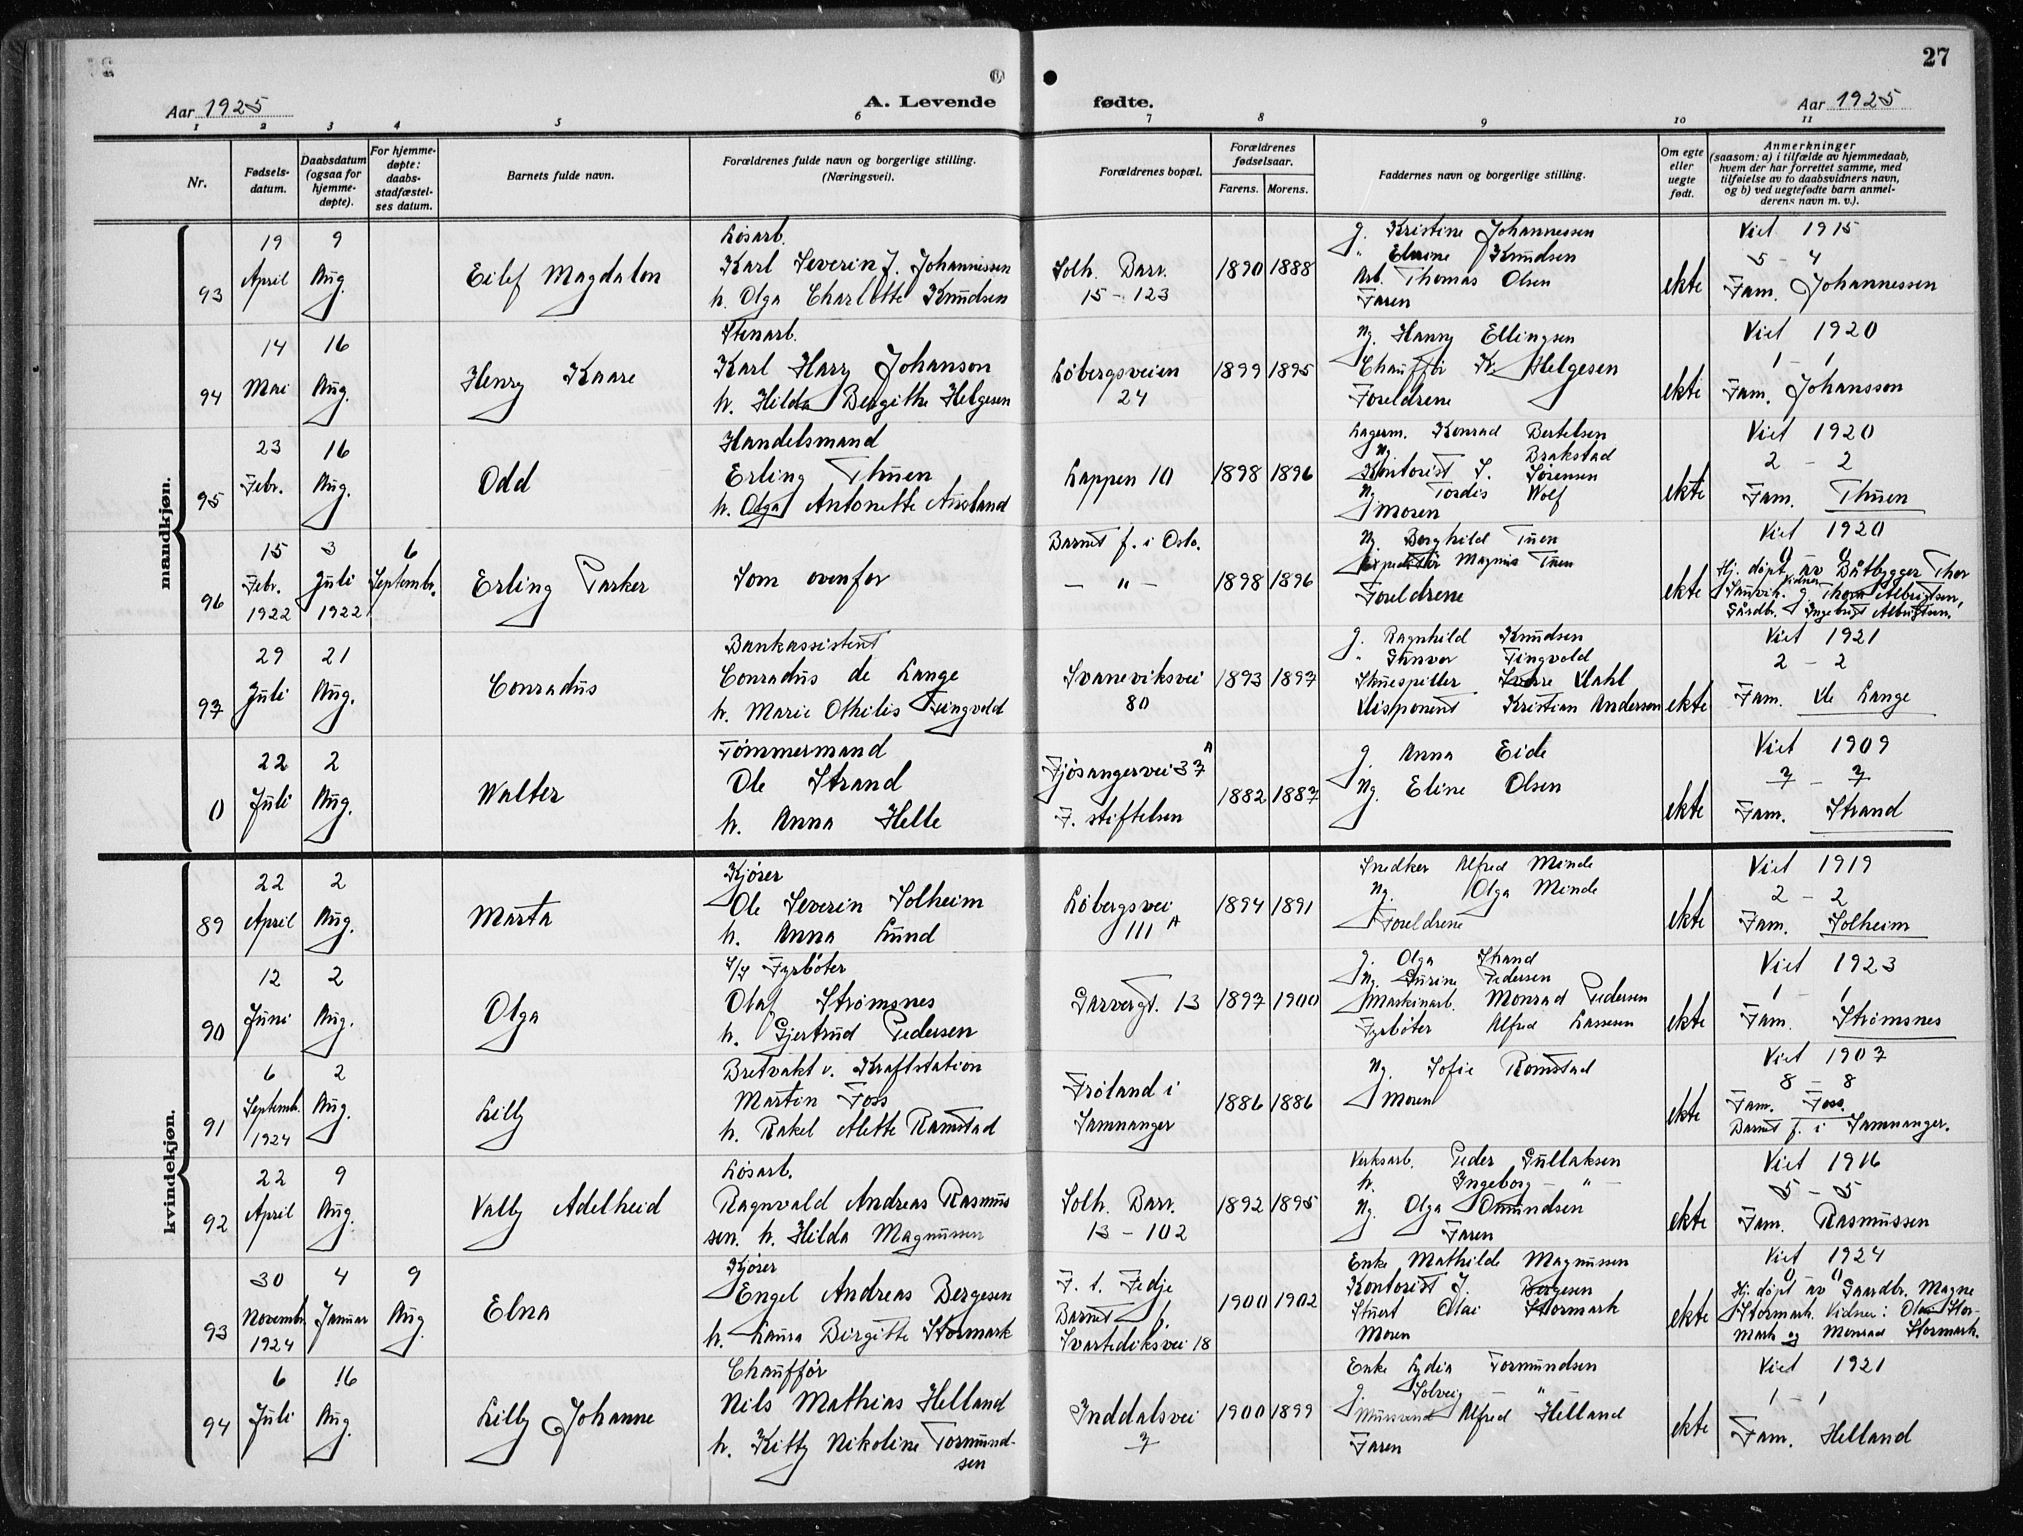 27
Aar 1925
A. Levende
fødte.
Aar 1925
1 2 3 4 5 6 7 8 9 10 11
Nr.
Fødsels-
datum.
Daabsdatum
(ogsaa for
hjemme-
døpte).
For hjemme-
døpte:
daabs-
stadfæstel-
ses datum.
Barnets fulde navn.
Forældrenes fulde navn og borgerlige stilling.
(Næringsvei).
Forældrenes bopæl.
Forældrenes
fødselsaar.
Farens. Morens.
Faddernes navn og borgerlige stilling.
Om egte
eller
uegte
født.
Anmerkninger
(saasom: a) i tilfælde av hjemmedaab,
hvem der har forrettet samme, med
tilføielse av to daabsvidners navn,
og b) ved uegtefødte barn anmel-
derens navn m. v.).
mandkjøn.
93
19
April
9
Aug.
Eilef Magdalon
Løsarb.
Karl Severin J. Johannessen
h. Olga Charlotte Knudsen
Solh. Barr.
15 - 123
1890 1888
g. Kristine Johannessen
" Knudsen
Arb. Thomas Olsen
Faren
ekte
Viet 1915
5 - 4
Fam. Johannessen
94
14
Mai
16
Aug.
Henry Kaare
Stenarb.
Karl Harry Johanson
h. Hilda Bergithe Helgesen
Løbergsveien
24
1899 1895
Ug. Hanny Ellingsen
Chauffør K. Helgesen
Foreldrene
ekte
Viet 1920
1 - 1
Fam. Johansson
95
23
Febr.
16
Aug.
Odd
Handelsmand
Erling Thuen
h. Olga Antonette Ausland
Lappen 10
1898 1896
Lagerm. Konrad Bertelsen
Ug. Brakstad
Kontorist S. Sørensen
Ug. Tordis Wolf
Moren
ekte
Viet 1920
2 - 2
Fam. Thuen
96
15
Febr.
1922
3
Juli
1922
6
Septembr.
Erling Parker
Som ovenfor
Barnet f. i Oslo.
- " -
1898 1896
Ug. Borghild Tuen
Magnus Tuen
Foreldrene
ekte
Viet 1920
Hj. døpt av Båtbygger Thor
Sauvik. Vidner: g. Thora Albrigtsen,
Gårdbr. Ingebrigt Albrigtsen.
97
29
Juli
21
Aug.
Conradus
Bankassistent
Conradus de Lange
h. Marie Othilis Tingvold
Svaneviksvei
80
1893 1897
g. Ragnhild Knudsen
" Gunvor Tingvold
Skuespiller Sverre Dahl
Disponent Kristian Andersen
ekte
Viet 1921
2 - 2
Fam. de Lange
0
22
Juli
2
Aug.
Walter
Tømmermand
Ole Strand
h. Anna Helle
Fjøsangervei 37 A
F. stiftelsen
1882 1887
g. Anna Eide
Ug. Eline Olsen
ekte
Viet 1909
7 - 7
Fam. Strand
kvindekjøn.
89
22
April
2
Aug.
Marta
Kjører
Ole Severin Solheim
h. Anna Lund
Løbergsvei
111 A
1894 1891
Snedker Alfred Minde
Ug. Olga Minde
Foreldrene
ekte
Viet 1919
2 - 2
Fam. Solheim
90
12
Juni
2
Aug.
Olga
Fyrbøter
Olaf Strømsnes
h. Gjertrud Pedersen
Garvergt. 13
1897 1900
g. Olga Strand
Ug. Gurine Pedersen
Maskinarb. Monrad Pedersen
Fyrbøter Alfred Lassesen
ekte
Viet 1923
1 - 1
Fam. Strømsnes
91
6
Septembr.
1924
2
Aug.
Lilly
Bretvakt v. Kraftstation
Martin Foss
h. Rakel Alette Ramstad
Frøland i
Samnanger
1886 1886
Ug. Sofie Romstad
Moren
ekte
Viet 1907
8 - 8
Fam. Foss.
Barnet f. i Samnanger.
92
22
April
9
Aug.
Vally Adelheid
Løsarb.
Ragnvald Andreas Rasmus
sen. h. Hilda Magnussen
Solh. Barr.
13 - 102
1892 1895
Verksarb. Peder Gullaksen
h. Ingeborg - " -
Ug. Olga Omundsen
Faren
ekte
Viet 1916
5 - 5
Fam. Rasmussen
93
30
Novembr.
1924
4
Januar
9
Aug.
Elna
Kjører
Engel Andreas Bergesen
h. Laura Birgitte Stormark
F. t. Fedje
Barnet f.
Svartediksvei 18
1900 1902
Enke Mathilde Magnussen
Kontorist J. Bergesen
Stuert Olai Stormark
Moren
ekte
Viet 1924
Hj. døpt av Gaardbr. Magne
Stormark. Vidner: Olai Stor-
mark og Monrad Stormark.
94
6
Juli
16
Aug.
Lilly Johanne
Chauffør
Nils Mathias Helland
h. Kitty Nikoline Tormund-
sen
Inddalsvei
7
1900 1899
Enke Lydia Tormundsen
g. Solveig - " -
Mursvend Alfred Helland
Faren
ekte
Viet 1921
1 - 1
Fam. Helland